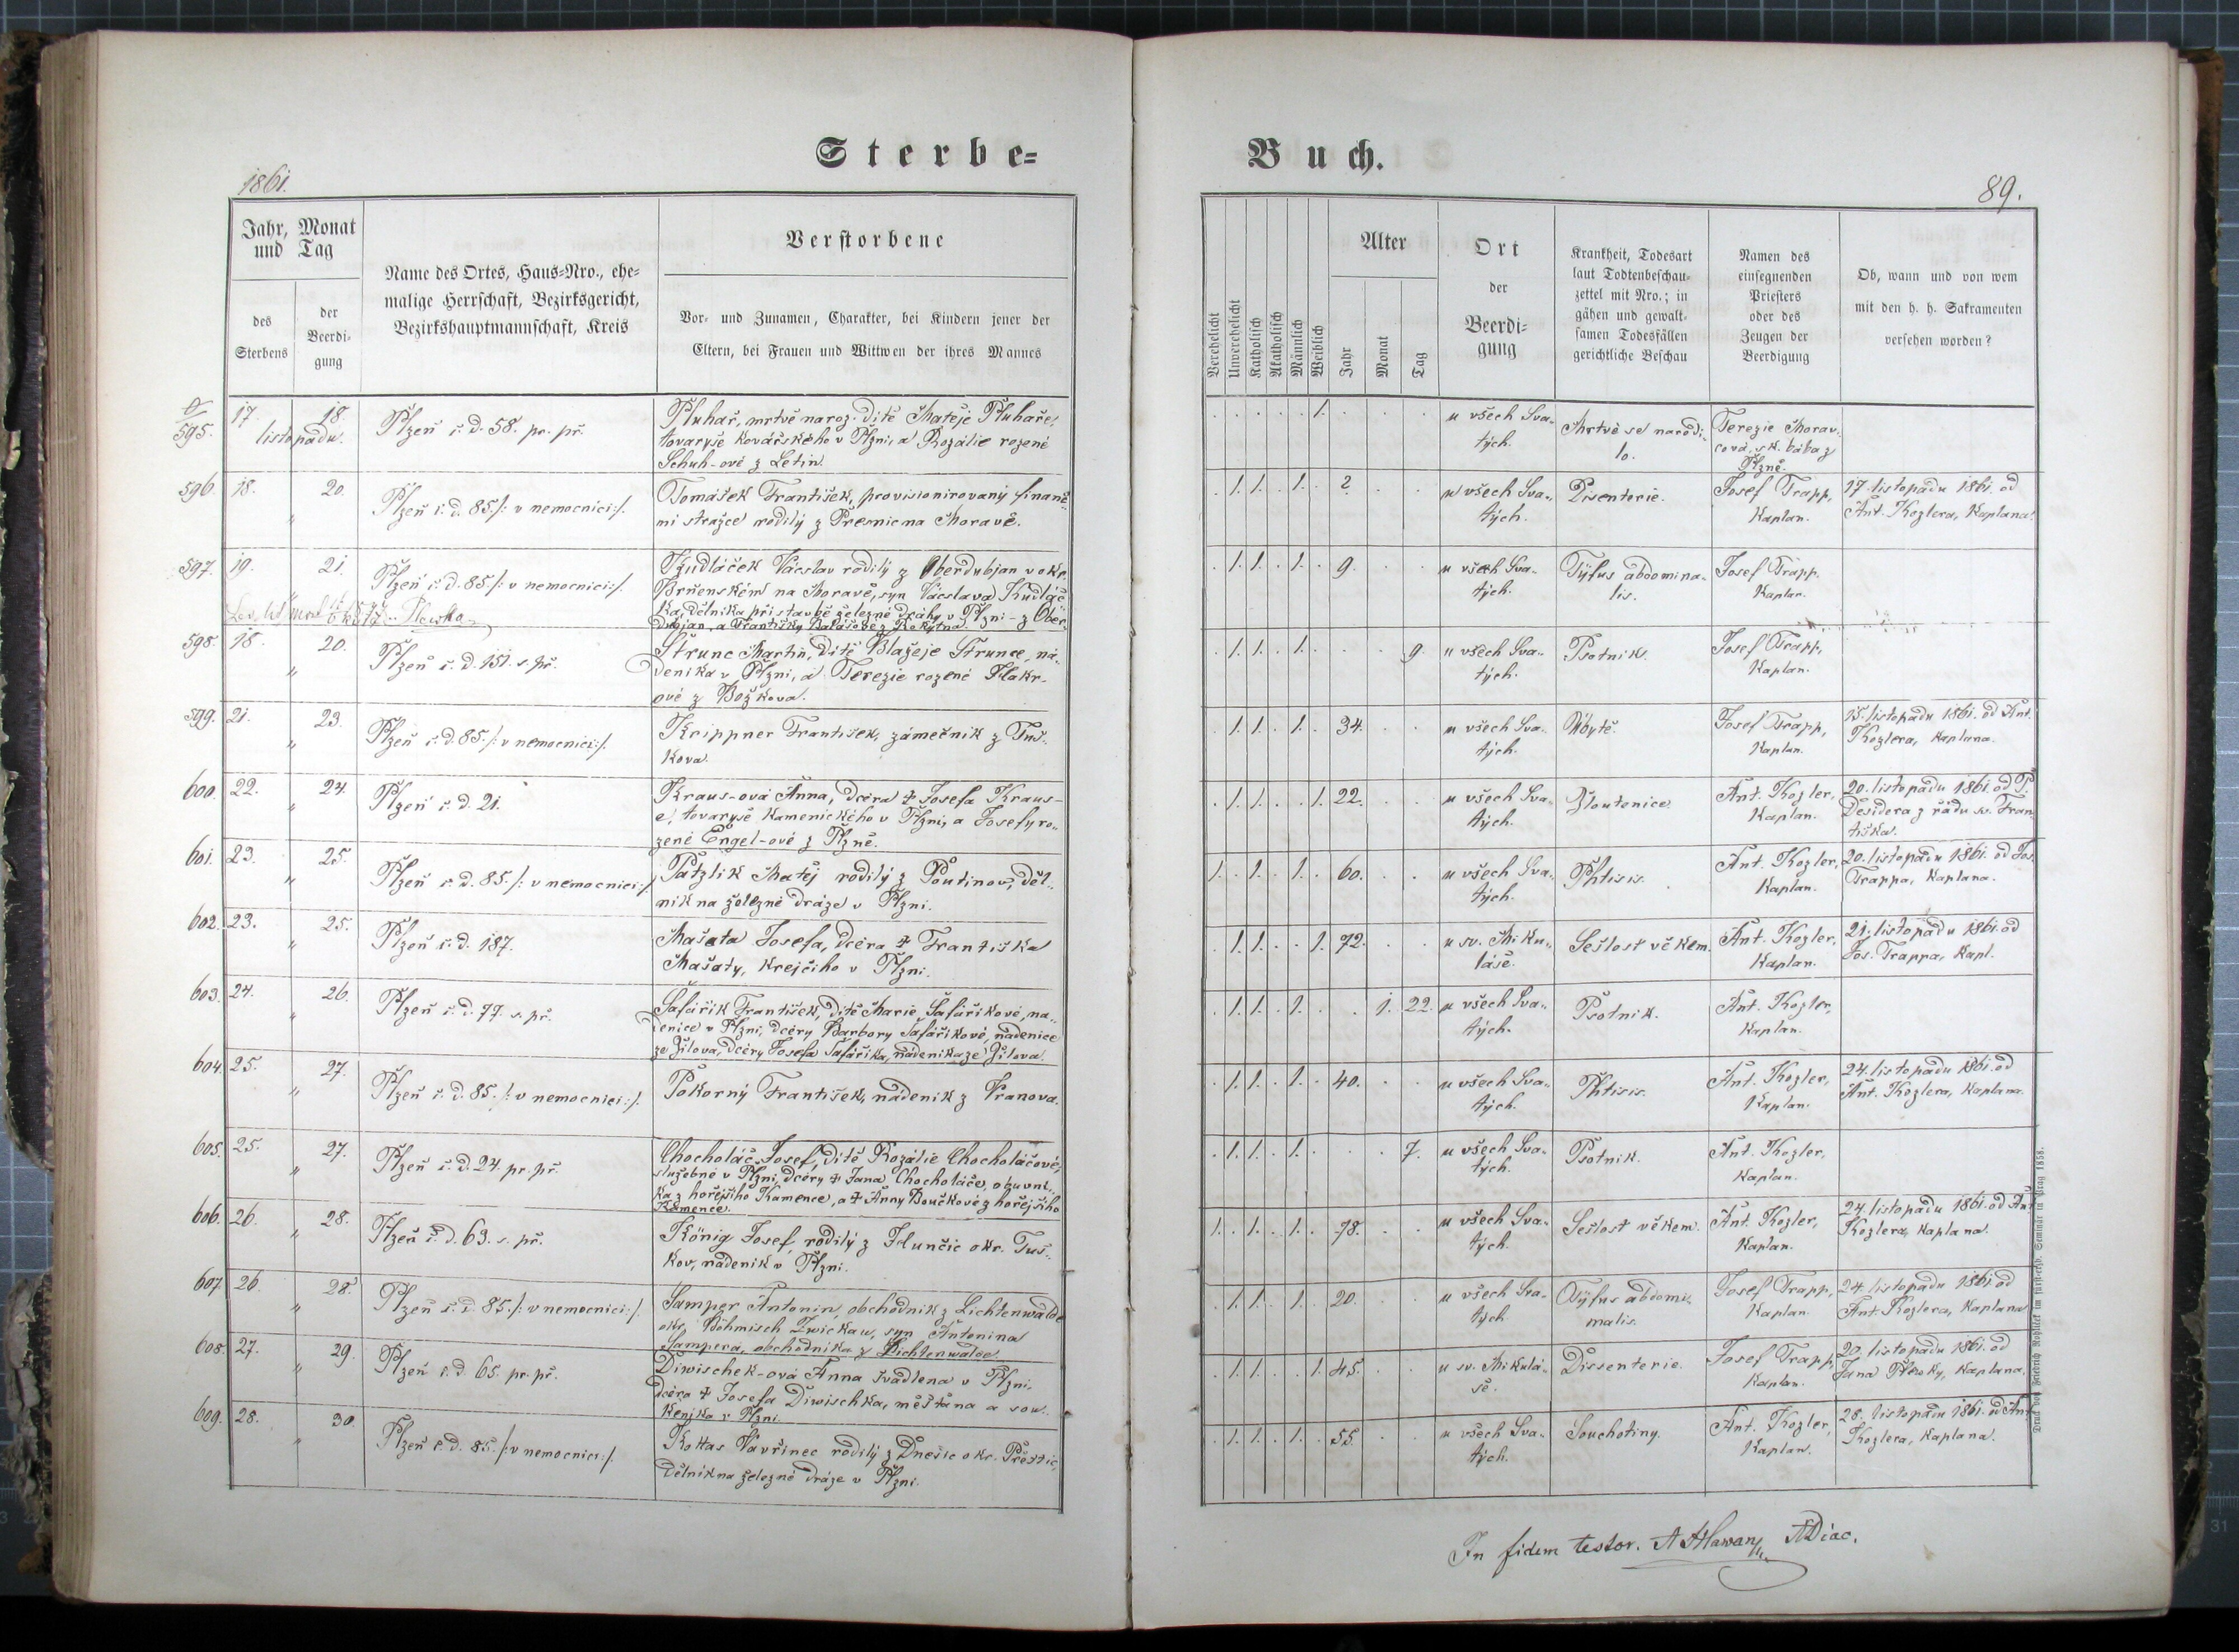 Sterbe-
Buch.
1861.
89.
Jahr, Monat
und Tag
des
Sterbens
der
Beerdi-
gung
Name des Ortes, Haus-Nro., ehe-
malige Herrschaft, Bezirksgericht,
Bezirkshauptmannschaft, Kreis
Verstorbene
Vor- und Zunamen, Charakter, bei Kindern jener der
Eltern, bei Frauen und Wittwen der ihres Mannes
Verehelicht
Unverehelicht
Katholisch
Akatholisch
Männlich
Weiblich
Alter
Jahr
Monat
Tag
Ort
der
Beerdi-
gung
Krankheit, Todesart
laut Todtenbeschau-
zettel mit Nro.; in
gähen und gewalt-
samen Todesfällen
gerichtliche Beschau
Namen des
einsegnenden
Priesters
oder des
Zeugen der
Beerdigung
Ob, wann und von wem
mit den h. h. Sakramenten
versehen worden?
595. 17. 18.
listopadu.
Plzeň č. d. 58. pr. př.
Pluhař, mrtvě naroz. dítě Matěje Pluhaře,
tovaryše kovářského v Plzni, a Rozálie rozené
Schuh-ové z Letin.
1.
u všech Sva-
tých.
Mrtvé se narodi-
lo.
Terezie Morav-
cová, sk. bába z
Plzně.
596. 18. 20.
"
Plzeň č. d. 85. /: v nemocnici :/.
Tomášek František, provisionirovaný finanč-
ní strážce rodilý z Přesnic na Moravě.
1. 1. 1. 2
u všech Sva-
tých.
Disenterie.
Josef Trapp,
Kaplan.
17. listopadu 1861. od
Ant. Kozlera, Kaplana.
597. 19. 21.
"
Plzeň č. d. 85. /: v nemocnici :/.
Kudláček Václav rodilý z Oberdubjan v okr.
Brněnském na Moravě, syn Václava Kudláč-
ka, dělníka při stavbě železné dráhy v Plzni - z Ober-
dubjan, a Františky Balášové z Rokytna.
1. 1. 1. 9.
u všech Sva-
tých.
Tyfus abdomina-
lis.
Josef Trapp.
Kaplan.
598. 18. 20.
"
Plzeň č. d. 151. s. př.
Štrunc Martin, dítě Blažeje Štrunce, ná-
deníka v Plzni, a Terezie rozené Flakr-
ové z Božkova.
1. 1. 1. 9.
u všech Sva-
tých.
Psotník.
Josef Trapp,
Kaplan.
599. 21. 23.
"
Plzeň č. d. 85. /: v nemocnici :/.
Krippner František, zámečník z Tuš-
kova.
1. 1. 1. 34.
u všech Sva-
tých.
Úbytě.
Josef Trapp,
Kaplan.
15. listopadu 1861. od Ant.
Kozlera, Kaplana.
600. 22. 24.
"
Plzeň č. d. 21.
Kraus-ová Anna, dcéra † Josefa Kraus-
e, tovaryše kamenického v Plzni, a Josefy ro-
zené Engel-ové z Plzně.
1. 1. 1. 22.
u všech Sva-
tých.
Žloutenice.
Ant. Kozler,
Kaplan.
20. listopadu 1861. od P.
Desidera z řádu sv. Fran-
tiška.
601. 23. 25.
"
Plzeň č. d. 85. /: v nemocnici :/.
Patzlik Matěj rodilý z Poutinov, děl-
ník na železné dráze v Plzni.
1. 1. 1. 60.
u všech Sva-
tých.
Phtisis.
Ant. Kozler,
Kaplan.
20. listopadu 1861. od Jos.
Trappa, Kaplana.
602. 23. 25.
"
Plzeň č. d. 187.
Mašata Josefa, dcéra † Františka
Mašaty, krejčího v Plzni.
1. 1. 1. 72.
u sv. Miku-
láše.
Sešlost věkem.
Ant. Kozler,
Kaplan.
21. listopadu 1861. od
Jos. Trappa, Kapl.
603. 24. 26.
"
Plzeň č. d. 77. s. př.
Šafářik František, dítě Marie Šafářikové, ná-
denice v Plzni, dcéry Barbory Šafářikové, nádenice
ze Žilova, dcéry Josefa Šafářika, nádeníka ze Žilova.
1. 1. 1. 1. 22.
u všech Sva-
tých.
Psotník.
Ant. Kozler,
Kaplan.
604. 25. 27.
"
Plzeň č. d. 85. /: v nemocnici :/.
Pokorný František, nádeník z Vranova.
1. 1. 1. 40.
u všech Sva-
tých.
Phtisis.
Ant. Kozler,
Kaplan.
24. listopadu 1861. od
Ant. Kozlera, Kaplana.
605. 25. 27.
"
Plzeň č. d. 24. pr. př.
Chocholáč Josef, dítě Rozálie Chocholáčové,
služebné v Plzni, dcéry † Jana Chocholáče, obuvní-
ka z hořejšího Kamence, a † Anny Boučkové z hořejšího
Kamence.
1. 1. 1. 7.
u všech Sva-
tých.
Psotník.
Ant. Kozler,
Kaplan.
606. 26. 28.
"
Plzeň č. d. 63. s. př.
König Josef, rodilý z Hunčic okr. Tuš-
kov, nádeník v Plzni.
1. 1. 1. 78.
u všech Sva-
tých.
Sešlost věkem.
Ant. Kozler,
Kaplan.
24. listopadu 1861. od Ant.
Kozlera, Kaplana.
607. 26. 28.
"
Plzeň č. d. 85. /: v nemocnici :/.
Samper Antonín, obchodník z Lichtenwalde
okr. Böhmisch Zwickau, syn Antonina
Sampera, obchodníka z Lichtenwalde.
1. 1. 1. 20.
u všech Sva-
tých
Tyfus abdomi-
nalis.
Josef Trapp,
Kaplan
24. listopadu 1861 od
Ant. Kozlera, Kaplana
608. 27. 29.
"
Plzeň č. d. 65. pr. př.
Diwischek-ová Anna švadlena v Plzni,
dcéra † Josefa Diwischka, měšťana a sou-
keníka v Plzni.
1. 1. 1. 45.
u sv. Mikulá-
še.
Dissenterie.
Josef Trapp,
Kaplan.
20. listopadu 1861. od
Jana Plewky, Kaplana.
609. 28. 30.
"
Plzeň č. d. 85. /: v nemocnici :/.
Kottas Vavřinec rodilý z Dnešic okr. Přeštic,
dělník na železné dráze v Plzni.
1. 1. 1. 55.
u všech Sva-
tých.
Souchotiny.
Ant. Kozler,
Kaplan.
28. listopadu 1861. od Ant.
Kozlera, Kaplana.
Druck von Friedrich Rohliček im fürst-erzb. Seminär in Prag 1858.
In fidem testor. A Hlawan ADiac.